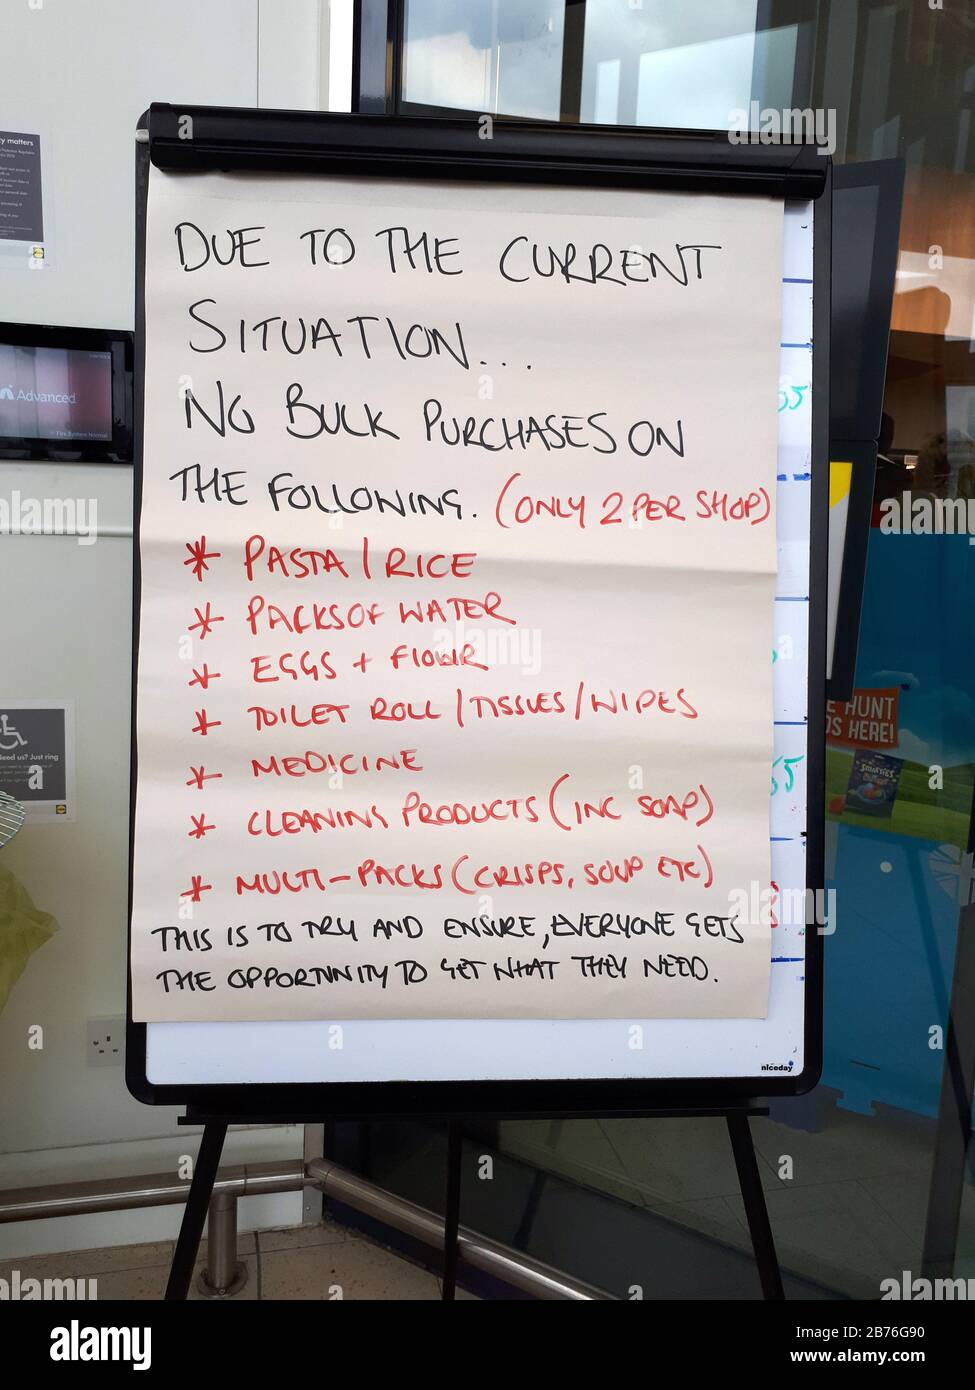 DUE TO THE CURRENT
SITUATION...
NO BULK PURCHASES ON
THE FOLLOWING. (ONLY 2 PER SHOP)
* PASTA / RICE
* PACKS OF WATER
* EGGS + FLOUR
* TOILET ROLL / TISSUES / WIPES
* MEDICINE
* CLEANING PRODUCTS (INC SOAP)
* MULTI-PACKS (CRISPS, SOUP ETC)
THIS IS TO TRY AND ENSURE, EVERYONE GETS
THE OPPORTUNITY TO GET WHAT THEY NEED.
niceday
matters
Advanced
need us? Just ring
HUNT
HERE!
SMARTIES
55
55
alamy
Image ID: 2B76G90
www.alamy.com